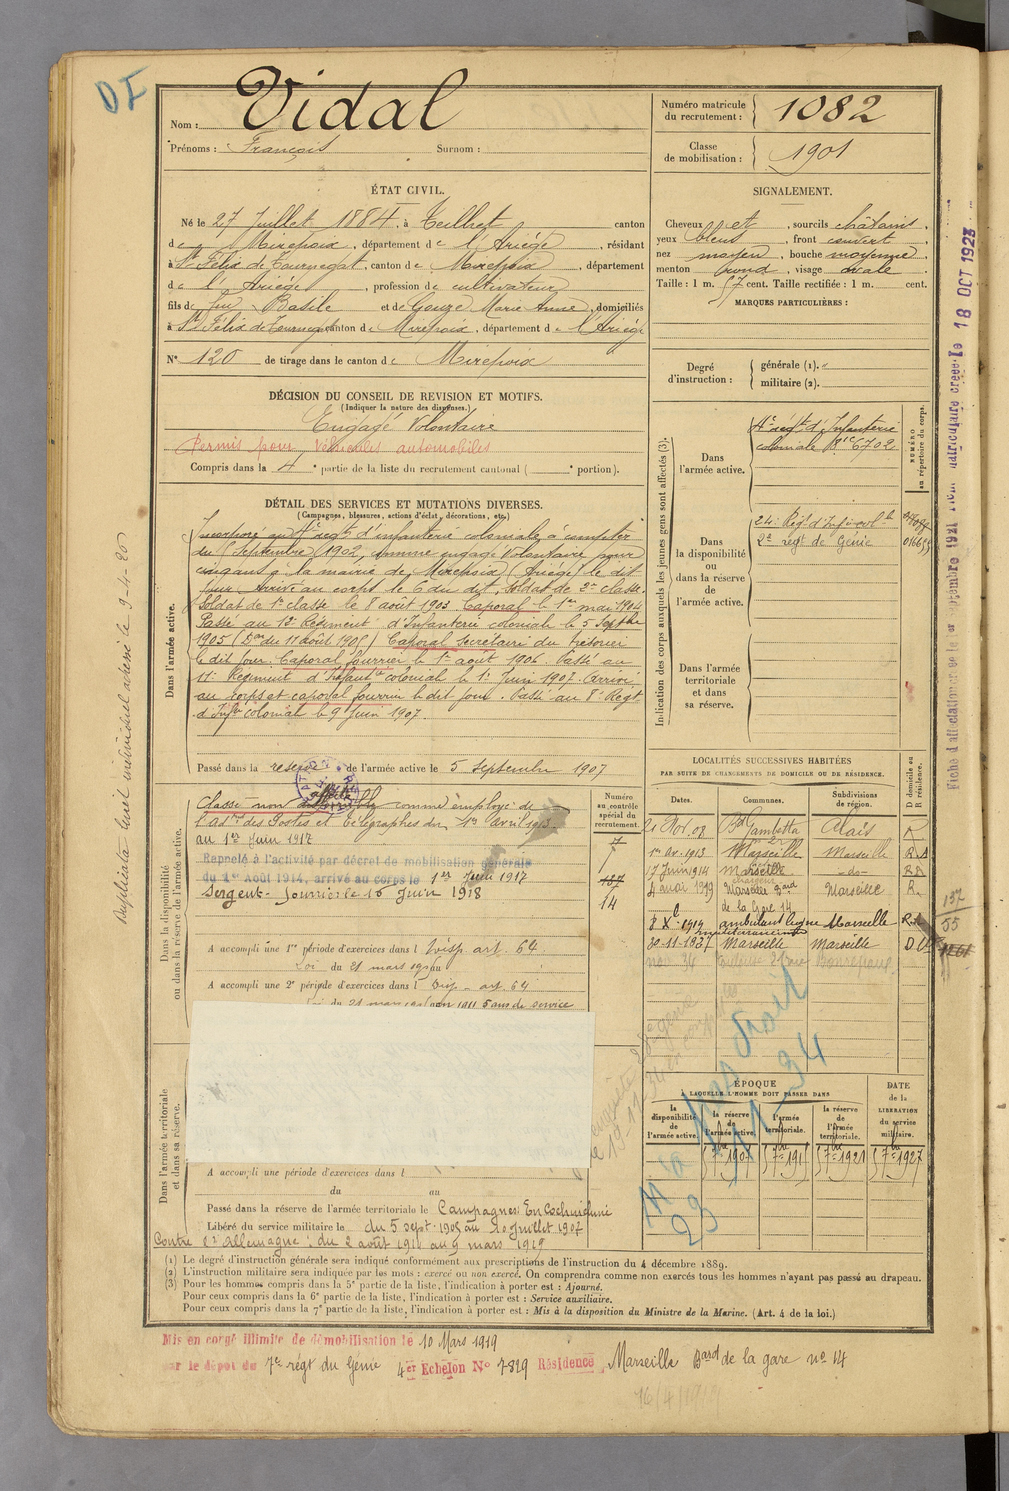 DI
Nom : Vidal
Prénoms : François Surnom :
Numéro matricule du recrutement : 1082
Classe de mobilisation : 1901
ÉTAT CIVIL.
Né le 27 Juillet 1884, à Teilhet canton
de Mirepoix, département de l'Ariège, résidant
à St Félix de Tournegat, canton de Mirepoix, département
de l'Ariège, profession de cultivateur
fils de feu Basile et de Gouze Marie Anne, domiciliés
à St Félix de Tournegat canton de Mirepoix, département de l'Ariège
N° 120 de tirage dans le canton de Mirepoix
SIGNALEMENT.
Cheveux et , sourcils châtains,
yeux bleus, front couvert,
nez moyen, bouche moyenne,
menton rond, visage ovale
Taille : 1 m. 57 cent. Taille rectifiée : 1 m. cent.
MARQUES PARTICULIÈRES :
Degré d'instruction : générale (1).
militaire (2).
DÉCISION DU CONSEIL DE REVISION ET MOTIFS.
(Indiquer la nature des dispenses.)
Engagé Volontaire
Permis pour véhicules automobiles
Compris dans la 4e partie de la liste du recrutement cantonal ( e portion).
DÉTAIL DES SERVICES ET MUTATIONS DIVERSES.
(Campagnes, blessures, actions d'éclat, décorations, etc.)
Dans l'armée active.
Incorporé au 4e régt d'infanterie coloniale à compter
du Septembre 1902, comme engagé Volontaire pour
cinq ans à la mairie de Mirepoix (Ariège) le dit
jour. Arrivé au corps le 6 du dit, soldat de 2e classe.
Soldat de 1e classe le 8 août 1903. Caporal le 1er mai 1904
Passé au 12e Régiment d'Infanterie coloniale le 5 Septbre
1905 (Don du 11 août 1905) Caporal secrétaire du trésorier
le dit jour. Caporal fourrier le 1er août 1906. Passé au
11e Régiment d'Infantie colonial le 1er Juin 1907. Arrivé
au corps et caporal fourrier le dit jour. Passé au 8e Régt
d'Infie colonial le 9 Juin 1907.
Passé dans la réserve de l'armée active le 5 septembre 1907
Indication des corps auxquels les jeunes gens sont affectés (3).
NUMÉRO au répertoire du corps.
Dans l'armée active.
4e régt d'Infanterie
coloniale Mle 6702
Dans la disponibilité ou dans la réserve de l'armée active.
24e Régt d'Infie colle
2e régt de Génie
Dans l'armée territoriale et dans sa réserve.
Dans la disponibilité ou dans la réserve de l'armée active.
Classé non affecté comme employé de
l'Adon des Postes et Télégraphes du 1er avril 1913.
au 1er Juin 1917
Rappelé à l'activité par décret de mobilisation générale
du 1er Août 1914, arrivé au corps le 1er Juin 1917
Sergent-fourrier le 16 Juin 1918
A accompli une 1re période d'exercices dans l Disp. art. 64
Loi du 21 mars 1905 au
A accompli une 2e période d'exercices dans l Disp. art. 64
Numéro au contrôle spécial du recrutement.
187
14
LOCALITÉS SUCCESSIVES HABITÉES
PAR SUITE DE CHANGEMENTS DE DOMICILE OU DE RÉSIDENCE.
Dates. Communes. Subdivisions de région. D domicile ou R résidence.
21 Nov. 08 Bd Gambetta Alais R
1er Av. 1913 Marseille Marseille R
17 Juin 1914 Marseille -do- R
4 mai 1919 Marseille Bard de la Gare 14 Marseille R
8 Xe 1919 ambulant ligne méditerranée Marseille R
30-11-1927 Marseille Marseille D
ÉPOQUE
À LAQUELLE L'HOMME DOIT PASSER DANS
la disponibilité de l'armée active. la réserve de l'armée active. l'armée territoriale. la réserve de l'armée territoriale. DATE de la LIBÉRATION du service militaire.
5 7bre 1907 5 7bre 191 5 7bre 1921 5 7bre 1927
Dans l'armée territoriale et dans sa réserve.
A accompli une période d'exercices dans l
du au
Passé dans la réserve de l'armée territoriale le Campagnes: En Cochinchine
Libéré du service militaire le du 5 sept. 1905 au 10 Juillet 1907
Contre l'Allemagne : du 2 août 1914 au 9 mars 1919
(1) Le degré d'instruction générale sera indiqué conformément aux prescriptions de l'instruction du 4 décembre 1889.
(2) L'instruction militaire sera indiquée par les mots : exercé ou non exercé. On comprendra comme non exercés tous les hommes n'ayant pas passé au drapeau.
(3) Pour les hommes compris dans la 5e partie de la liste, l'indication à porter est : Ajourné.
Pour ceux compris dans la 6e partie de la liste, l'indication à porter est : Service auxiliaire.
Pour ceux compris dans la 7e partie de la liste, l'indication à porter est : Mis à la disposition du Ministre de la Marine. (Art. 4 de la loi.)
Mis en congé illimité de démobilisation le 10 Mars 1919
par le dépôt du 7e régt du Génie 4er Echelon N° 7829 Résidence, Marseille Bard de la gare no 14
16/4/1919
Duplicata livret individuel adressé le 9-4-20
18 OCT 1923
137
55